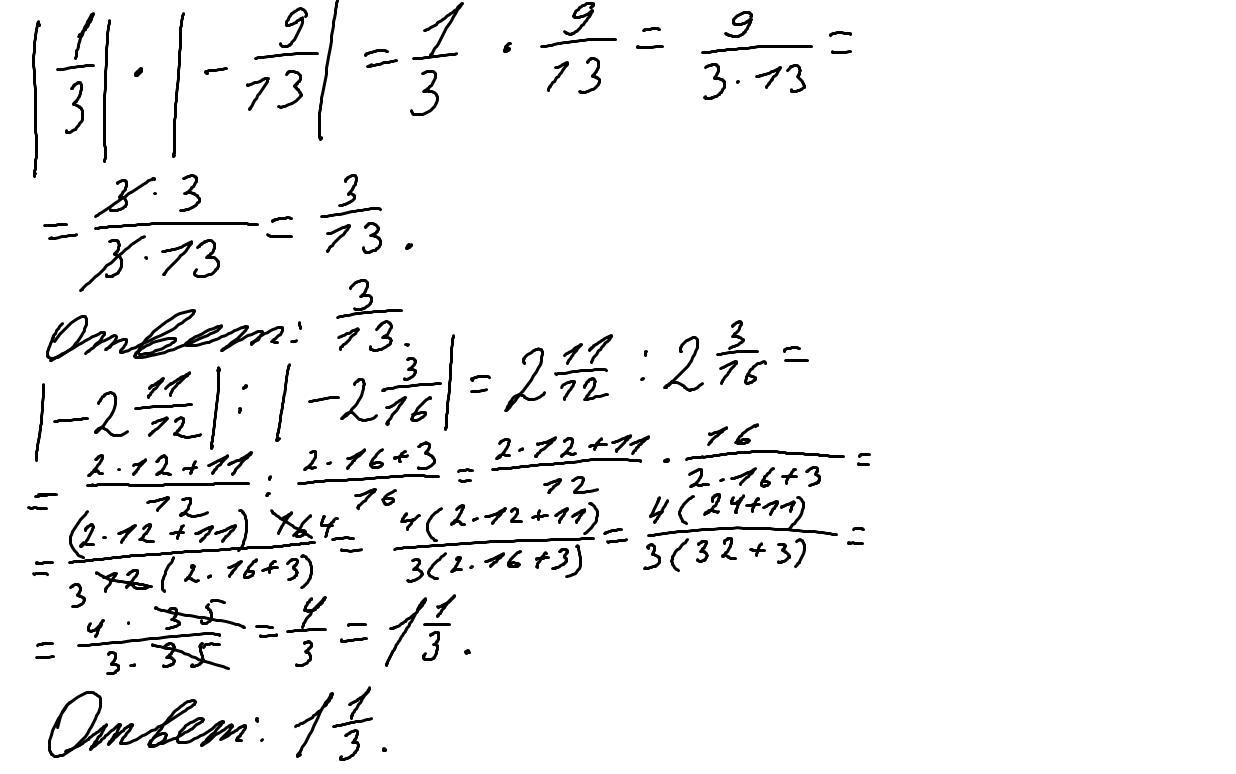 |1/3| · |- 9/13| = 1/3 · 9/13 = 9/(3·13) =
= (3·3)/(3·13) = 3/13.
Ответ: 3/13.
|-2 11/12| : |-2 3/16| = 2 11/12 : 2 3/16 =
= (2·12+11)/12 : (2·16+3)/16 = (2·12+11)/12 · 16/(2·16+3) =
= ((2·12+11) 16 4)/(3 12 (2·16+3)) = 4(2·12+11)/3(2·16+3) = 4(24+11)/3(32+3) =
= (4·35)/(3·35) = 4/3 = 1 1/3.
Ответ: 1 1/3.